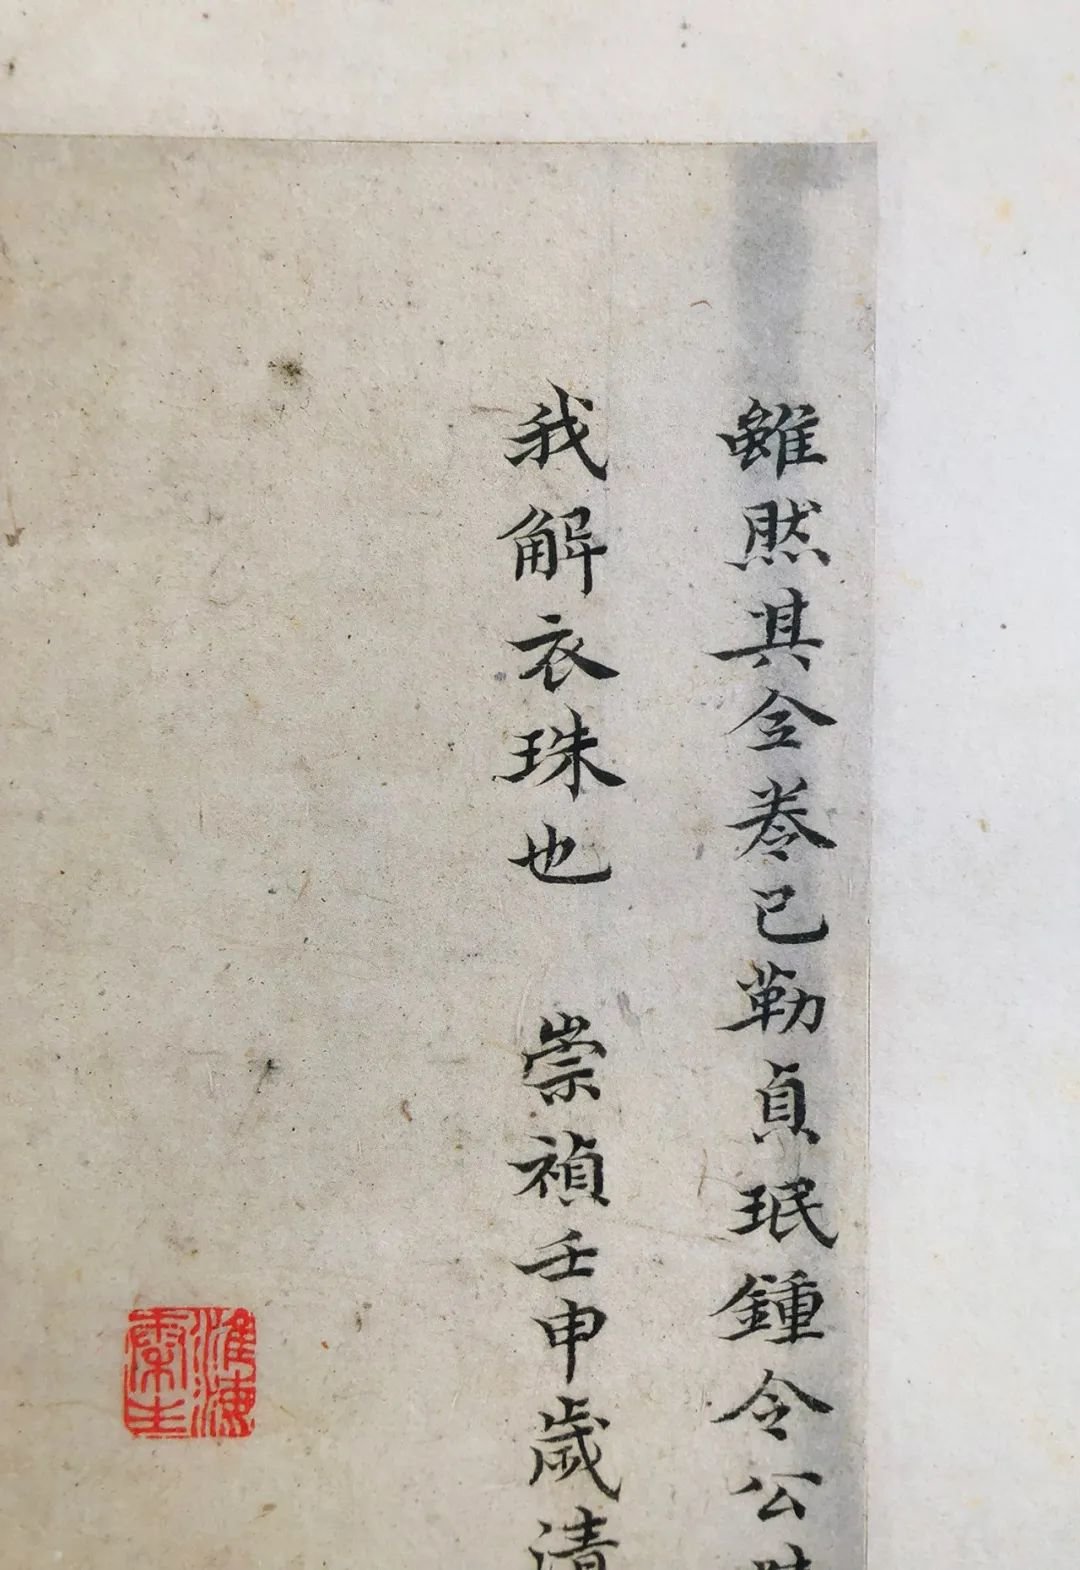 雖然其全卷已勒貞珉鍾令公時
我解衣珠也 崇禎壬申歲清
淮海
秦生